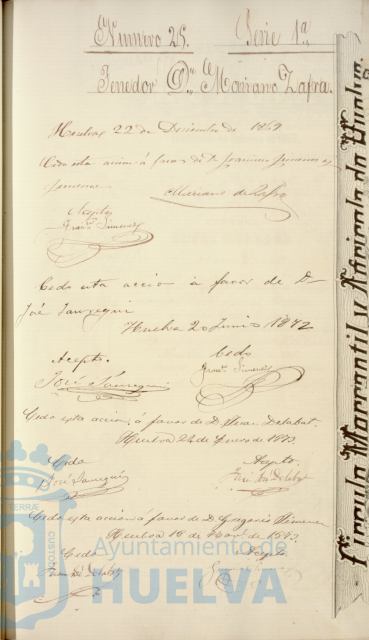 Número 25. Serie 1ª
Tenedor D.n Mariano Zafra.
Huelva 22 de Diciembre de 1869
Cedo esta accion á favor de D.
Jimenez
Mariano de Zafra
Acepto
Franco Jimenez
Cedo esta accion á favor de D.
José Jauregui
Huelva 20 Junio 1872
Acepto. Cedo
José Jauregui Franco Jimenez
Cedo esta accion, á favor de D. Delabat.
Huelva 24 de Enero de 1873
Cedo Acepto.
José Jauregui Delabat
Cedo esta accion á favor de D. Gregorio Jimenez
Huelva 18 de
Cedo
Delabat
Círculo Mercantil y Agricola de Huelva.
Ayuntamiento de
HUELVA